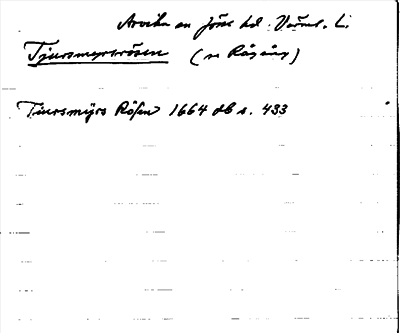 Arvika en Jösse hd. Värml. l.
Tjursmyrsrösen (se Rågång)
Tiursmÿrs Röser 1664 db s. 433